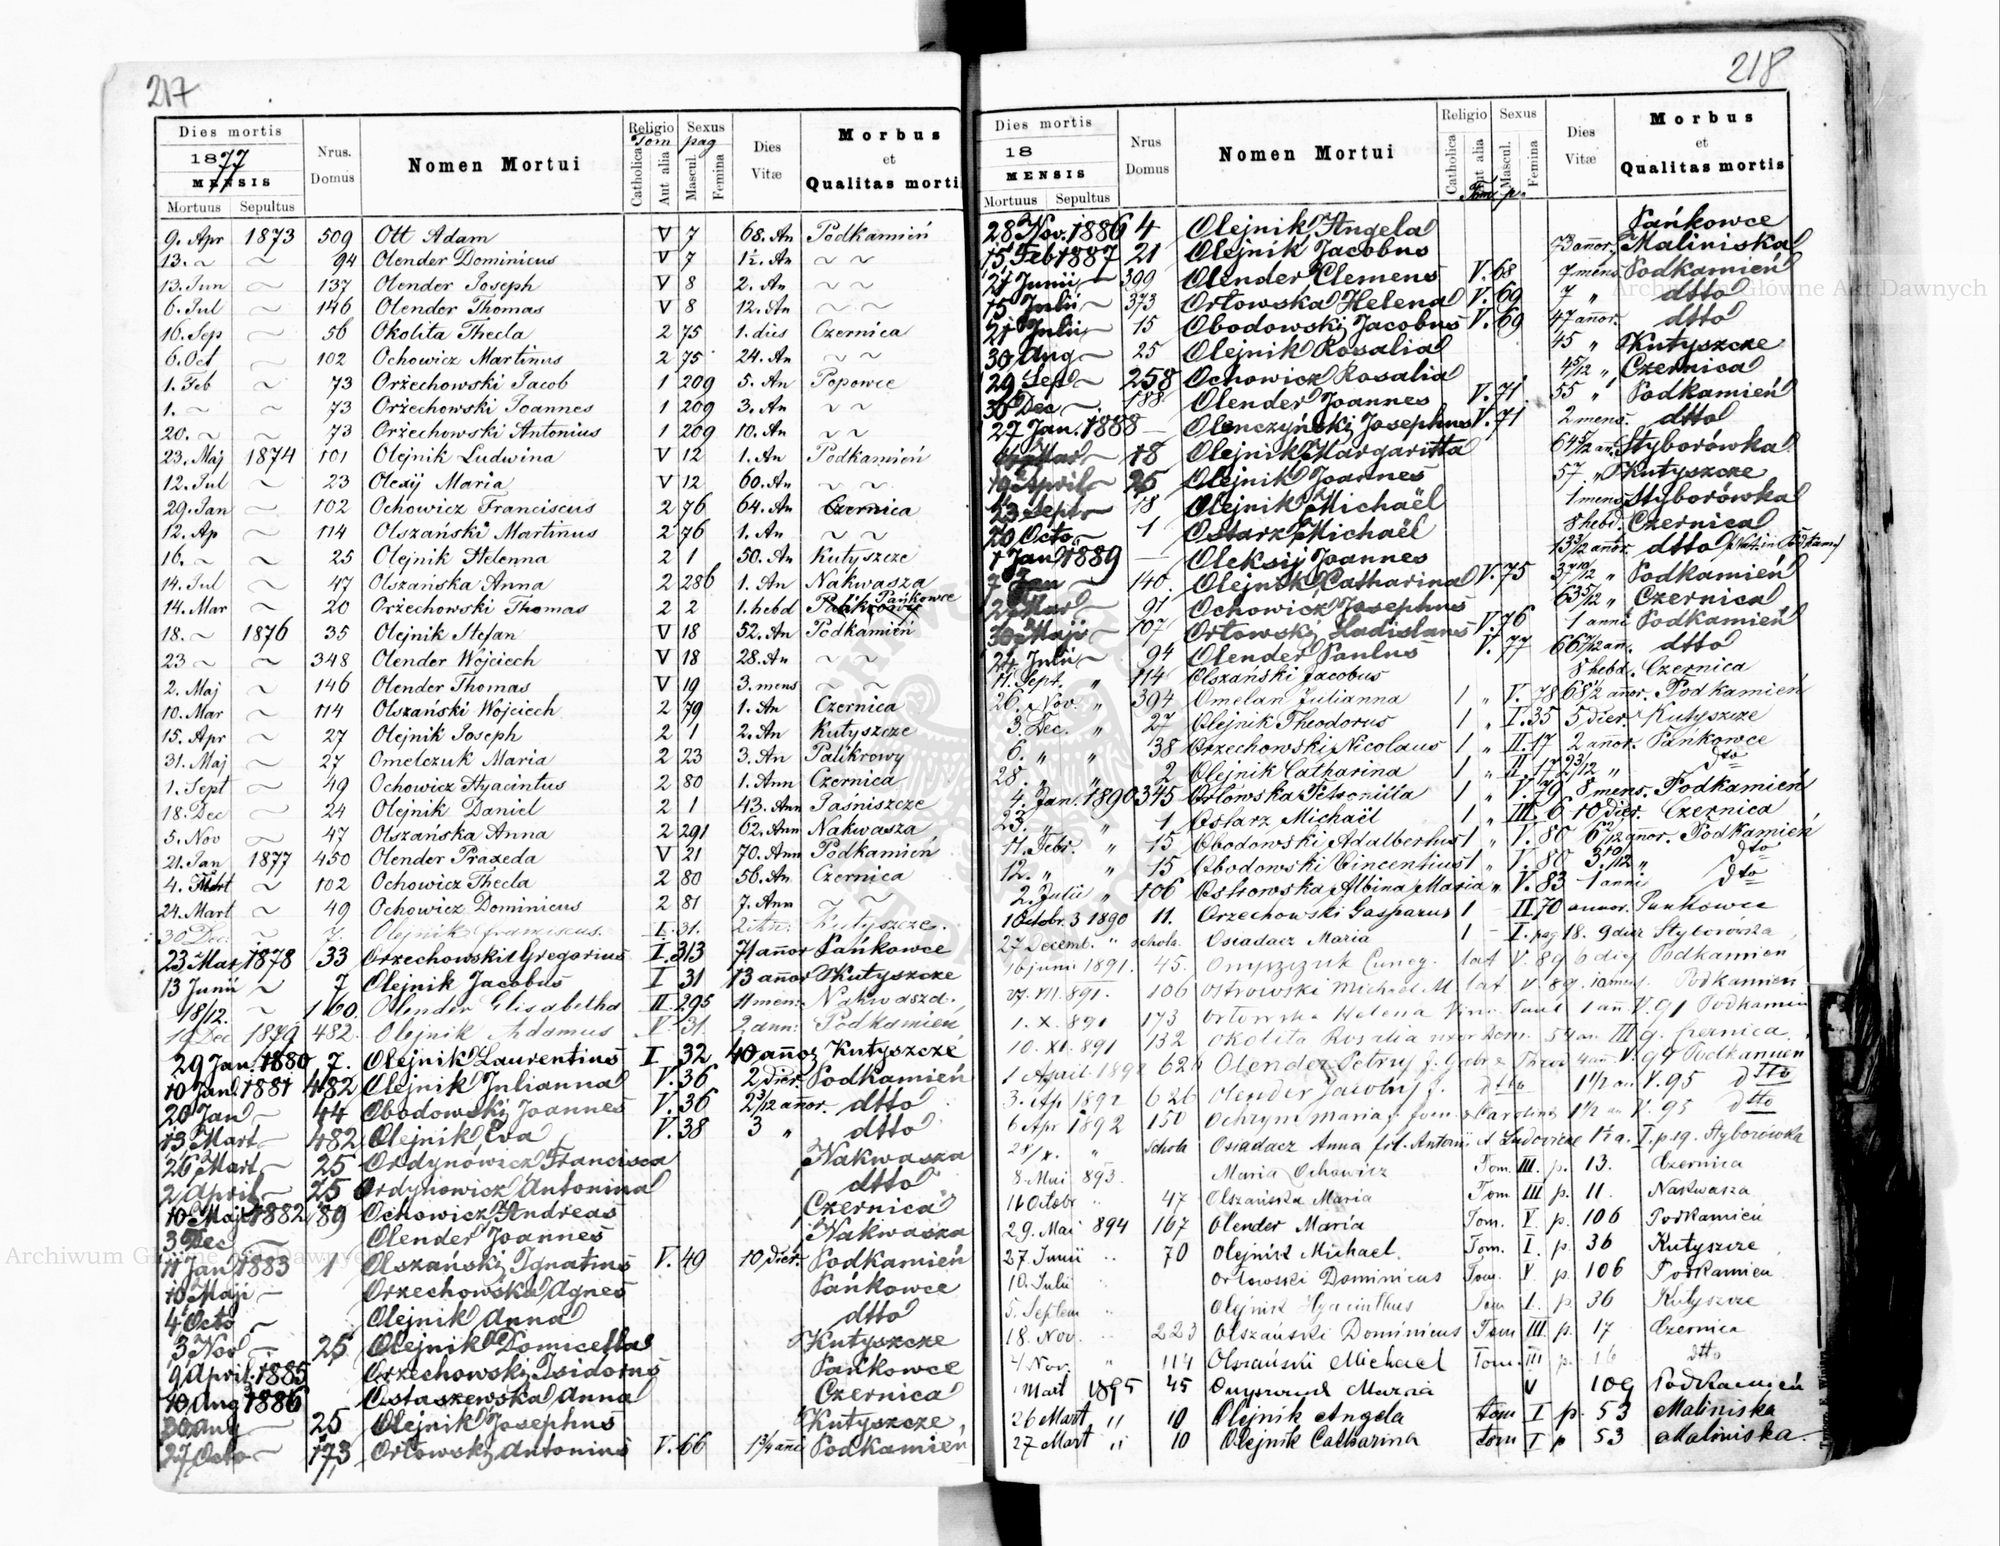 217
Dies mortis
1877
MENSIS
Mortuus Sepultus
Nrus. Domus
Nomen Mortui
Religio
Tom
Catholica
Aut alia
Sexus
pag
Mascul.
Femina
Dies Vitæ
Morbus
et
Qualitas morti
9. Apr 1873 509 Ott Adam V 7 68. An Podkamień
13. ~ ~ 94 Olender Dominicus V 7 1½. An ~ ~
13. Jun ~ 137 Olender Joseph V 8 2. An ~ ~
6. Jul ~ 146 Olender Thomas V 8 12. An ~ ~
16. Sep ~ 56 Okolita Thecla 2 75 1. dies Czernica
6. Oct ~ 102 Ochowicz Martinus 2 75 24. An ~ ~
1. Feb ~ 73 Orżechowski Jacob 1 209 5. An Popowce
1. ~ ~ 73 Orżechowski Joannes 1 209 3. An ~ ~
20. ~ ~ 73 Orżechowski Antonius 1 209 10. An ~ ~
23. Maj 1874 101 Olejnik Ludwina V 12 1. An Podkamień
12. Jul ~ 23 Olexij Maria V 12 60. An ~ ~
29. Jan ~ 102 Ochowicz Franciscus 2 76 64. An Czernica
12. Ap ~ 114 Olszański Martinus 2 76 1. An ~ ~
16. ~ ~ 25 Olejnik Helenna 2 1 50. An Kutyszcze
14. Jul ~ 47 Olszańska Anna 2 286 1. An Nakwasza
14. Mar ~ 20 Orżechowski Thomas 2 2 1. hebd Palikrowy Pańkowce
18. ~ 1876 35 Olejnik Stefan V 18 52. An Podkamień
23 ~ ~ 348 Olender Wojciech V 18 28. An ~ ~
2. Maj ~ 146 Olender Thomas V 19 3. mens ~ ~
10. Mar ~ 114 Olszański Wojciech 2 79 1. An Czernica
15. Apr ~ 27 Olejnik Joseph 2 1 2. An Kutyszcze
31. Maj ~ 27 Omelczuk Maria 2 23 3. An Palikrowy
1. Sept ~ 49 Ochowicz Hyacintus 2 80 1. Ann Czernica
18. Dec ~ 24 Olejnik Daniel 2 1 43. Ann Jasniszcze
5. Nov ~ 47 Olszańska Anna 2 291 62. Ann Nakwasza
21. Jan 1877 450 Olender Praxeda V 21 70. Ann Podkamień
4. Mart ~ 102 Ochowicz Thecla 2 80 56. An Czernica
24. Mart ~ 49 Ochowicz Dominicus 2 81 7. Ann ~ ~
30 Dec: ~ 7. Olejnik Franciscus I 31. 2 An: Kutyszcze.
23 Mar 1878 33 Orzechowski Gregorius I. 313 71 añor Pańkowce
13 Junii ~ 7 Olejnik Jacobus I 31 13 añor Kutyszcze
18/12. ~ 160. Olender Elisabetha II. 295 11 men: Nakwasza.
19 Dec 1879 482. Olejnik Adamus V. 31. 2 ann: Podkamień
29 Jan. 1880 7. Olejnik Laurentius I 32 40 añor Kutyszcze
10 Jan. 1881 482 Olejnik Julianna V. 36 2 dier. Podkamień
20 Jan ~ 44 Obodowski Joannes V. 36 2 3/12 añor. dtto
13 Mart ~ 482 Olejnik Eva V. 38 3 „ dtto
26 Mart ~ 25 Ordynówicz Francisca Nakwasza
2 April ~ 25 Ordynowicz Antonina dtto
10 Maji 1882 89 Ochowicz Andreas Czernica
3 Dec ~ Olender Joannes Nakwasza
11 Jan 1883 1 Olszański Ignatius V. 49 10 dier. Podkamień
10 Maji ~ Orzechowska Agnes Pańkowce
4 Octo ~ Olejnik Anna dtto
3 Nov ~ 25 Olejnik Domicella Kutyszcze
9 April. 1885 Orzechowski Isidorus Pańkowce
10 Aug 1886 Ostaszewska Anna Czernica
30 Aug ~ 25 Olejnik Josephus Kutyszcze
27 Octo ~ 173 Orłowski Antonius V. 66 1 3/4 añi Podkamień
218
Dies mortis
18
MENSIS
Mortuus Sepultus
Nrus Domus
Nomen Mortui
Religio
Catholica
Aut alia
Sexus
Mascul.
Femina
Tom p.
Dies Vitæ
Morbus
et
Qualitas mortis
28 Nov. 1886 4 Olejnik Angela Pańkowce
15 Feb 1887 21 Olejnik Jacobus 73 añor. Maliniska
27 Junii ~ 399 Olender Clemens V. 68 7 mens. Podkamień
15 Julii ~ 373 Orłowska Helena V. 69 7 „ dtto
21 Julii ~ 15 Obodowski Jacobus V. 69 47 añor. dtto
30 Aug ~ 25 Olejnik Rosalia 45 „ Kutyszcze
29 Sep ~ 258 Ochowicz Rosalia 45/12 „ Czernica
30 Dec ~ 188 Olender Joannes V. 71 55 „ Podkamień
27 Jan. 1888 — Olenczyński Josephus V. 71 2 mens. dtto
Mar ~ 18 Olejnik Margaritta Styborówka
19 April ~ 25 Olejnik Joannes 57 „ Kutyszcze
23 Sept ~ 18 Olejnik Michaël 1 mens Styborówka
20 Octo ~ 1 Ostarz Michaël 8 hebd. Czernica
1 Jan 1889 — Oleksij Joannes 13 3/12 añor. dtto
7 Jan ~ 140. Olejnik Catharina V. 75 37 10/12 „ Podkamień
2 Mar ~ 91 Ochowicz Josephus 63 5/12 „ Czernica
30 Maji ~ 107 Orłowski Ladislaus V. 76 1 anni Podkamień
24 Julii ~ 94 Olender Paulus V. 77 66 7/12 añ. dtto
11. Sept. „ 114 Olszański Jacobus 8 hebd. Czernica
26. Nov. „ 394 Omelan Julianna 1 „ V. 78 68½ añor. Podkamień
3. Dec. „ 27 Olejnik Theodorus 1 „ I. 35 5 dier. Kutyszcze
6. „ „ 38 Orzechowski Nicolaus 1 „ II. 17 2 añor. Pańkowce
28. „ „ 2 Olejnik Catharina 1 „ II. 17 2 3/12 „ dto
4. Jan. 1890 345 Orłowska Petronilla 1 „ V. 79 8 mens. Podkamień
23. „ 1 Ostarz Michaël 1 „ III. 6 10 dier. Czernica
11. Febr. „ 15 Obodowski Adalberthus 1 „ V. 80 6 7/12 añor. Podkamień
12. „ „ 15 Obodowski Vincentius 1 „ V. 80 3 10/12 „ dto
2. Julii „ 106 Ostrowska Albina Maria „ V. 83 1 anni dto
10 Octobr. 3 1890 11. Orzechowski Gasparus 1 — II 70 annor. Pankowce
27 Decemb. „ schola. Osiadacz Maria 1 — I. pag 18. 9 dier Styborowka
16 junii 1891. 45. lat V. 89 6 dies Podkamien
VII. 891. 106 Ostrowski Michael M lat V. 89. 10 mens. Podkamień.
1. X. 891 173 Orłowska Helena 1 añ. V. 91 Podkamień
10. XI. 891 132 Okolita Rosalia uxor Dom. 54 an. III 9. Czernica.
1 April 1892 626 Olender Petrus f. 4 añ. V. 94 Podkamień
3. Ap 1892 626 Olender Jacobus f. dtto 1½ a. V. 95 dtto
6 Apr 1892 150 Ochrym Maria f. Carolina 1½ an V. 95 dtto
28/X. „ Schola Osiadacz Anna fil. Antonii et Ludovicae 1½ a. I. p. 19. Styborówka
8. Mai 893. Maria Ochowicz Tom. III. p. 13. Czernica
11 Octobr „ 47 Olszańska Maria Tom III p. 11. Nakwasza
29. Mai 894 167 Olender Maria Tom. V. p. 106 Podkamień
27 Junii „ 70 Olejnik Michael. Tom. I. p. 36 Kutyszcze
10. Julii „ Orłowski Dominicus Tom. V p. 106 Podkamien
5. Septem „ Olejnik Hyacinthus Tom I. p. 36 Kutyszcze
18. Nov. „ 223 Olszański Dominicus Tom III p. 17 Czernica
4 Nov. „ 114 Olszański Michael Tom. III p. 16 dtto
Mart 1895 45 V 109 Podkamień
26 Mart „ 10 Olejnik Angela tom I p. 53 Maliniska
27 Mart „ 10 Olejnik Catharina tom I p 53 Maliniska.
Archiwum Główne Akt Dawnych
Archiwum Główne Akt Dawnych